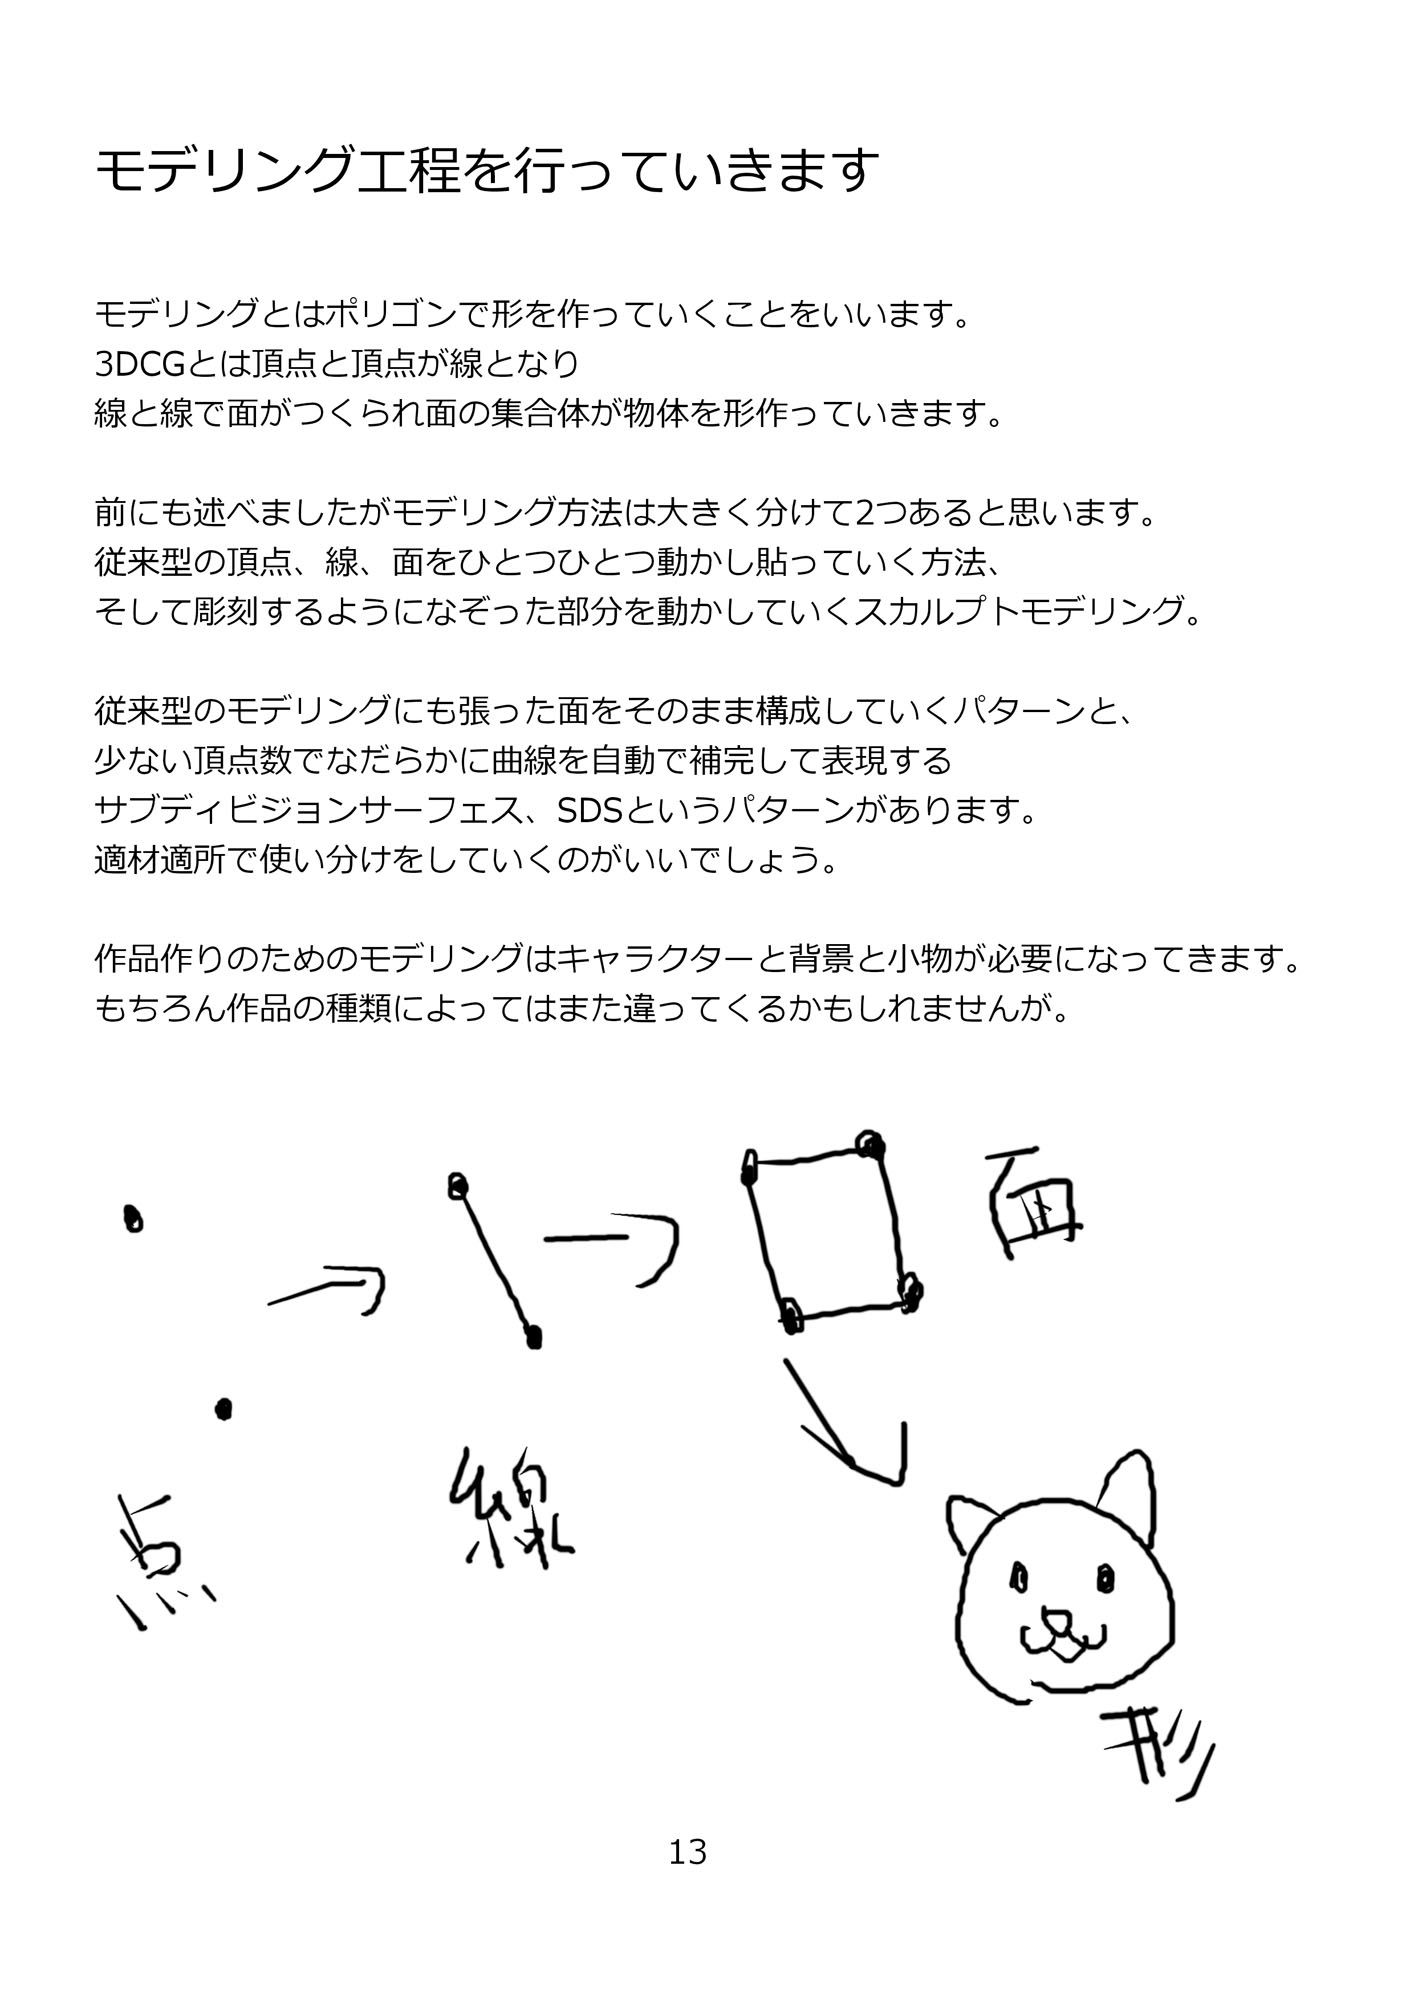 モデリング工程を行っていきます
モデリングとはポリゴンで形を作っていくことをいいます。
3DCGとは頂点と頂点が線となり
線と線で面がつくられ面の集合体が物体を形作っていきます。
前にも述べましたがモデリング方法は大きく分けて2つあると思います。
従来型の頂点、線、面をひとつひとつ動かし貼っていく方法、
そして彫刻するようになぞった部分を動かしていくスカルプトモデリング。
従来型のモデリングにも張った面をそのまま構成していくパターンと、
少ない頂点数でなだらかに曲線を自動で補完して表現する
サブディビジョンサーフェス、SDSというパターンがあります。
適材適所で使い分けをしていくのがいいでしょう。
作品作りのためのモデリングはキャラクターと背景と小物が必要になってきます。
もちろん作品の種類によってはまた違ってくるかもしれませんが。
点
線
面
形
13